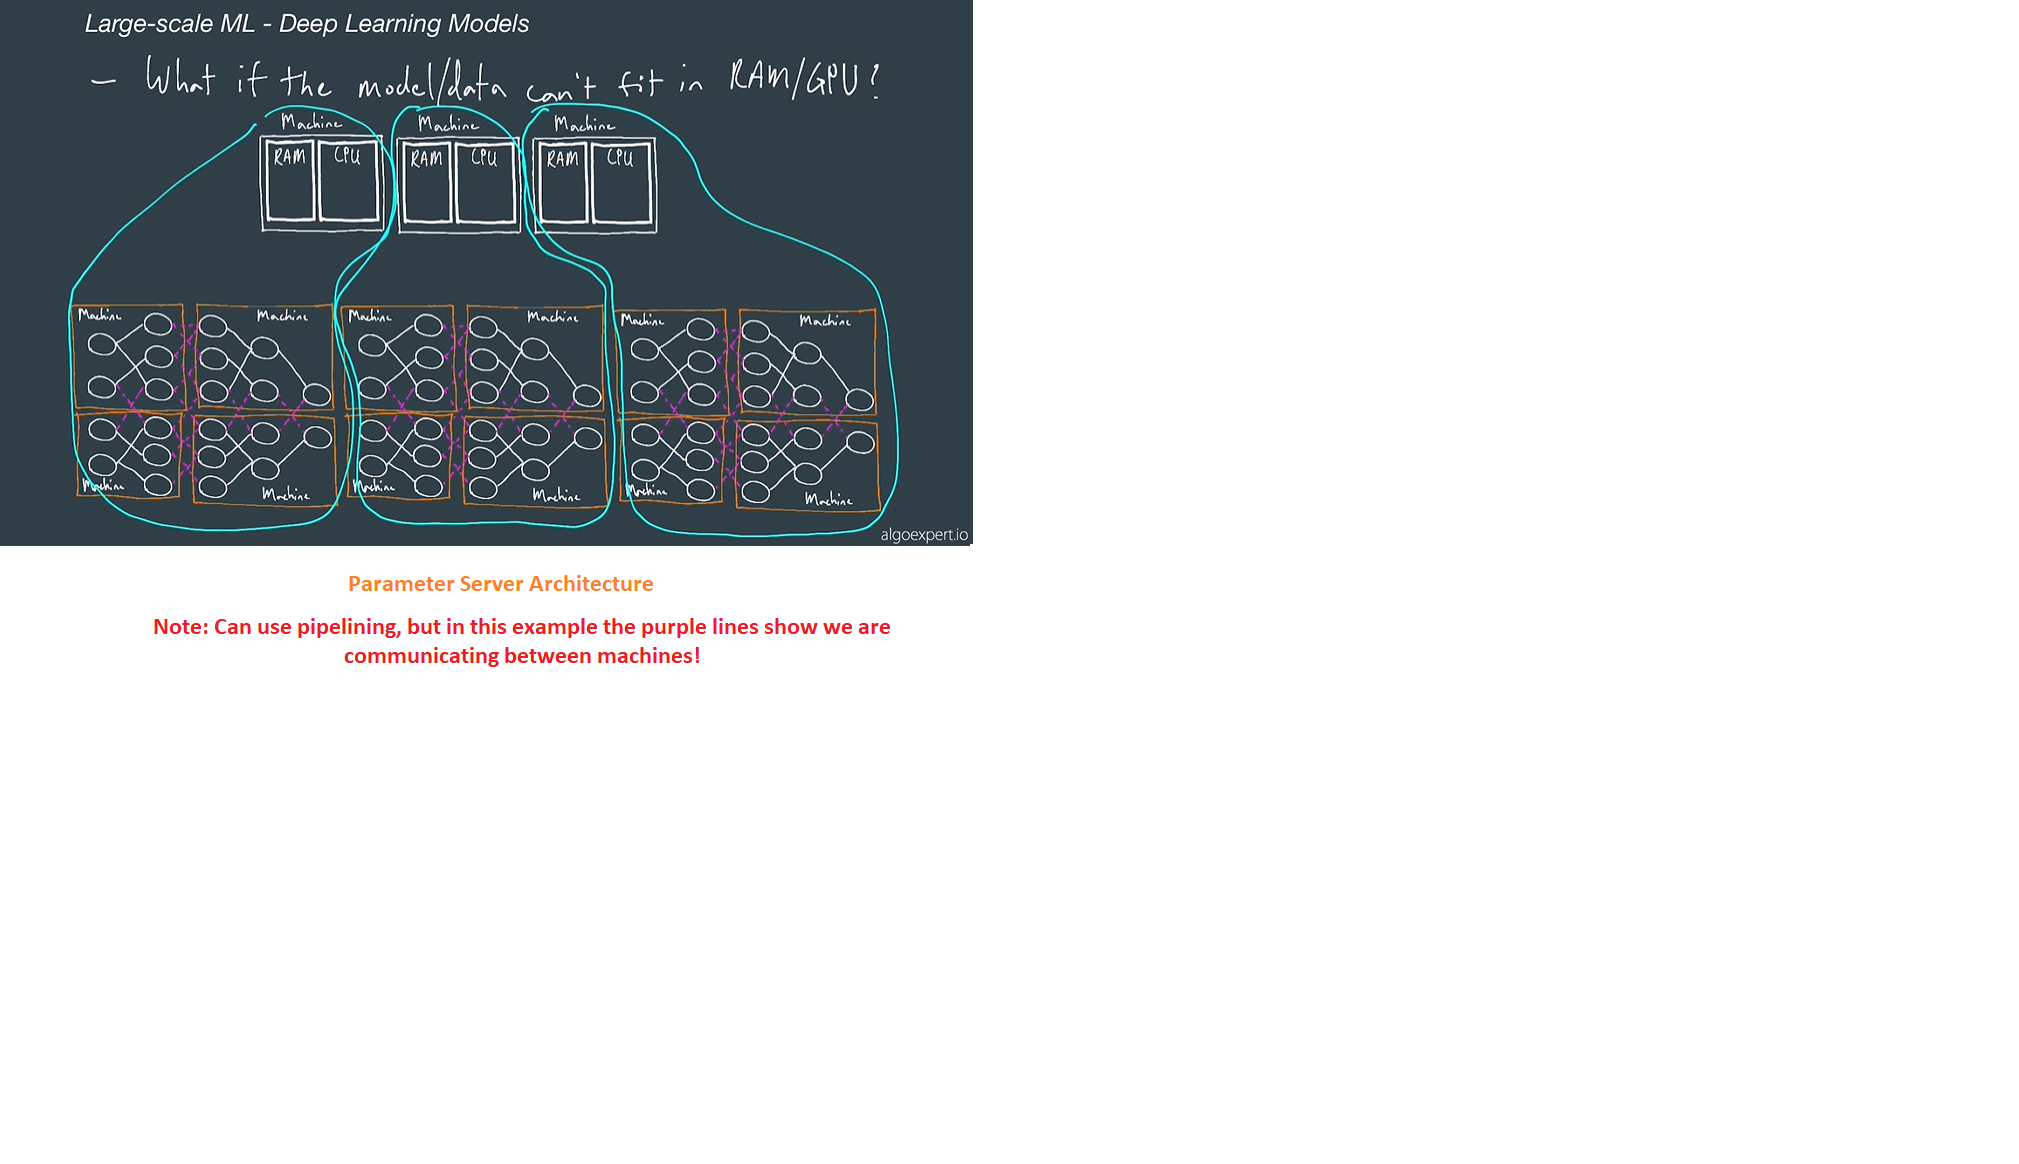 Large-scale ML - Deep Learning Models
- What if the model/data can't fit in RAM/GPU?
Machine Machine Machine
RAM CPU RAM CPU RAM CPU
Machine Machine Machine Machine Machine Machine
Machine Machine Machine Machine Machine Machine
algoexpert.io
Parameter Server Architecture
Note: Can use pipelining, but in this example the purple lines show we are
communicating between machines!